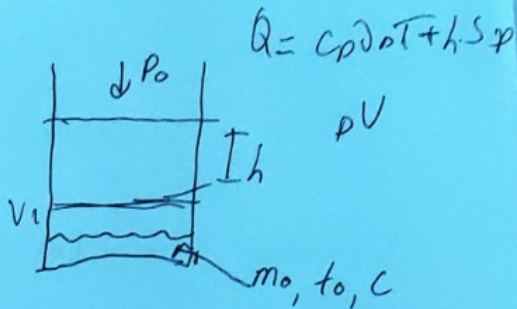 Q = Cp∂DT + h·Sp
↓ P₀
pV
h
V₁
m₀, t₀, c